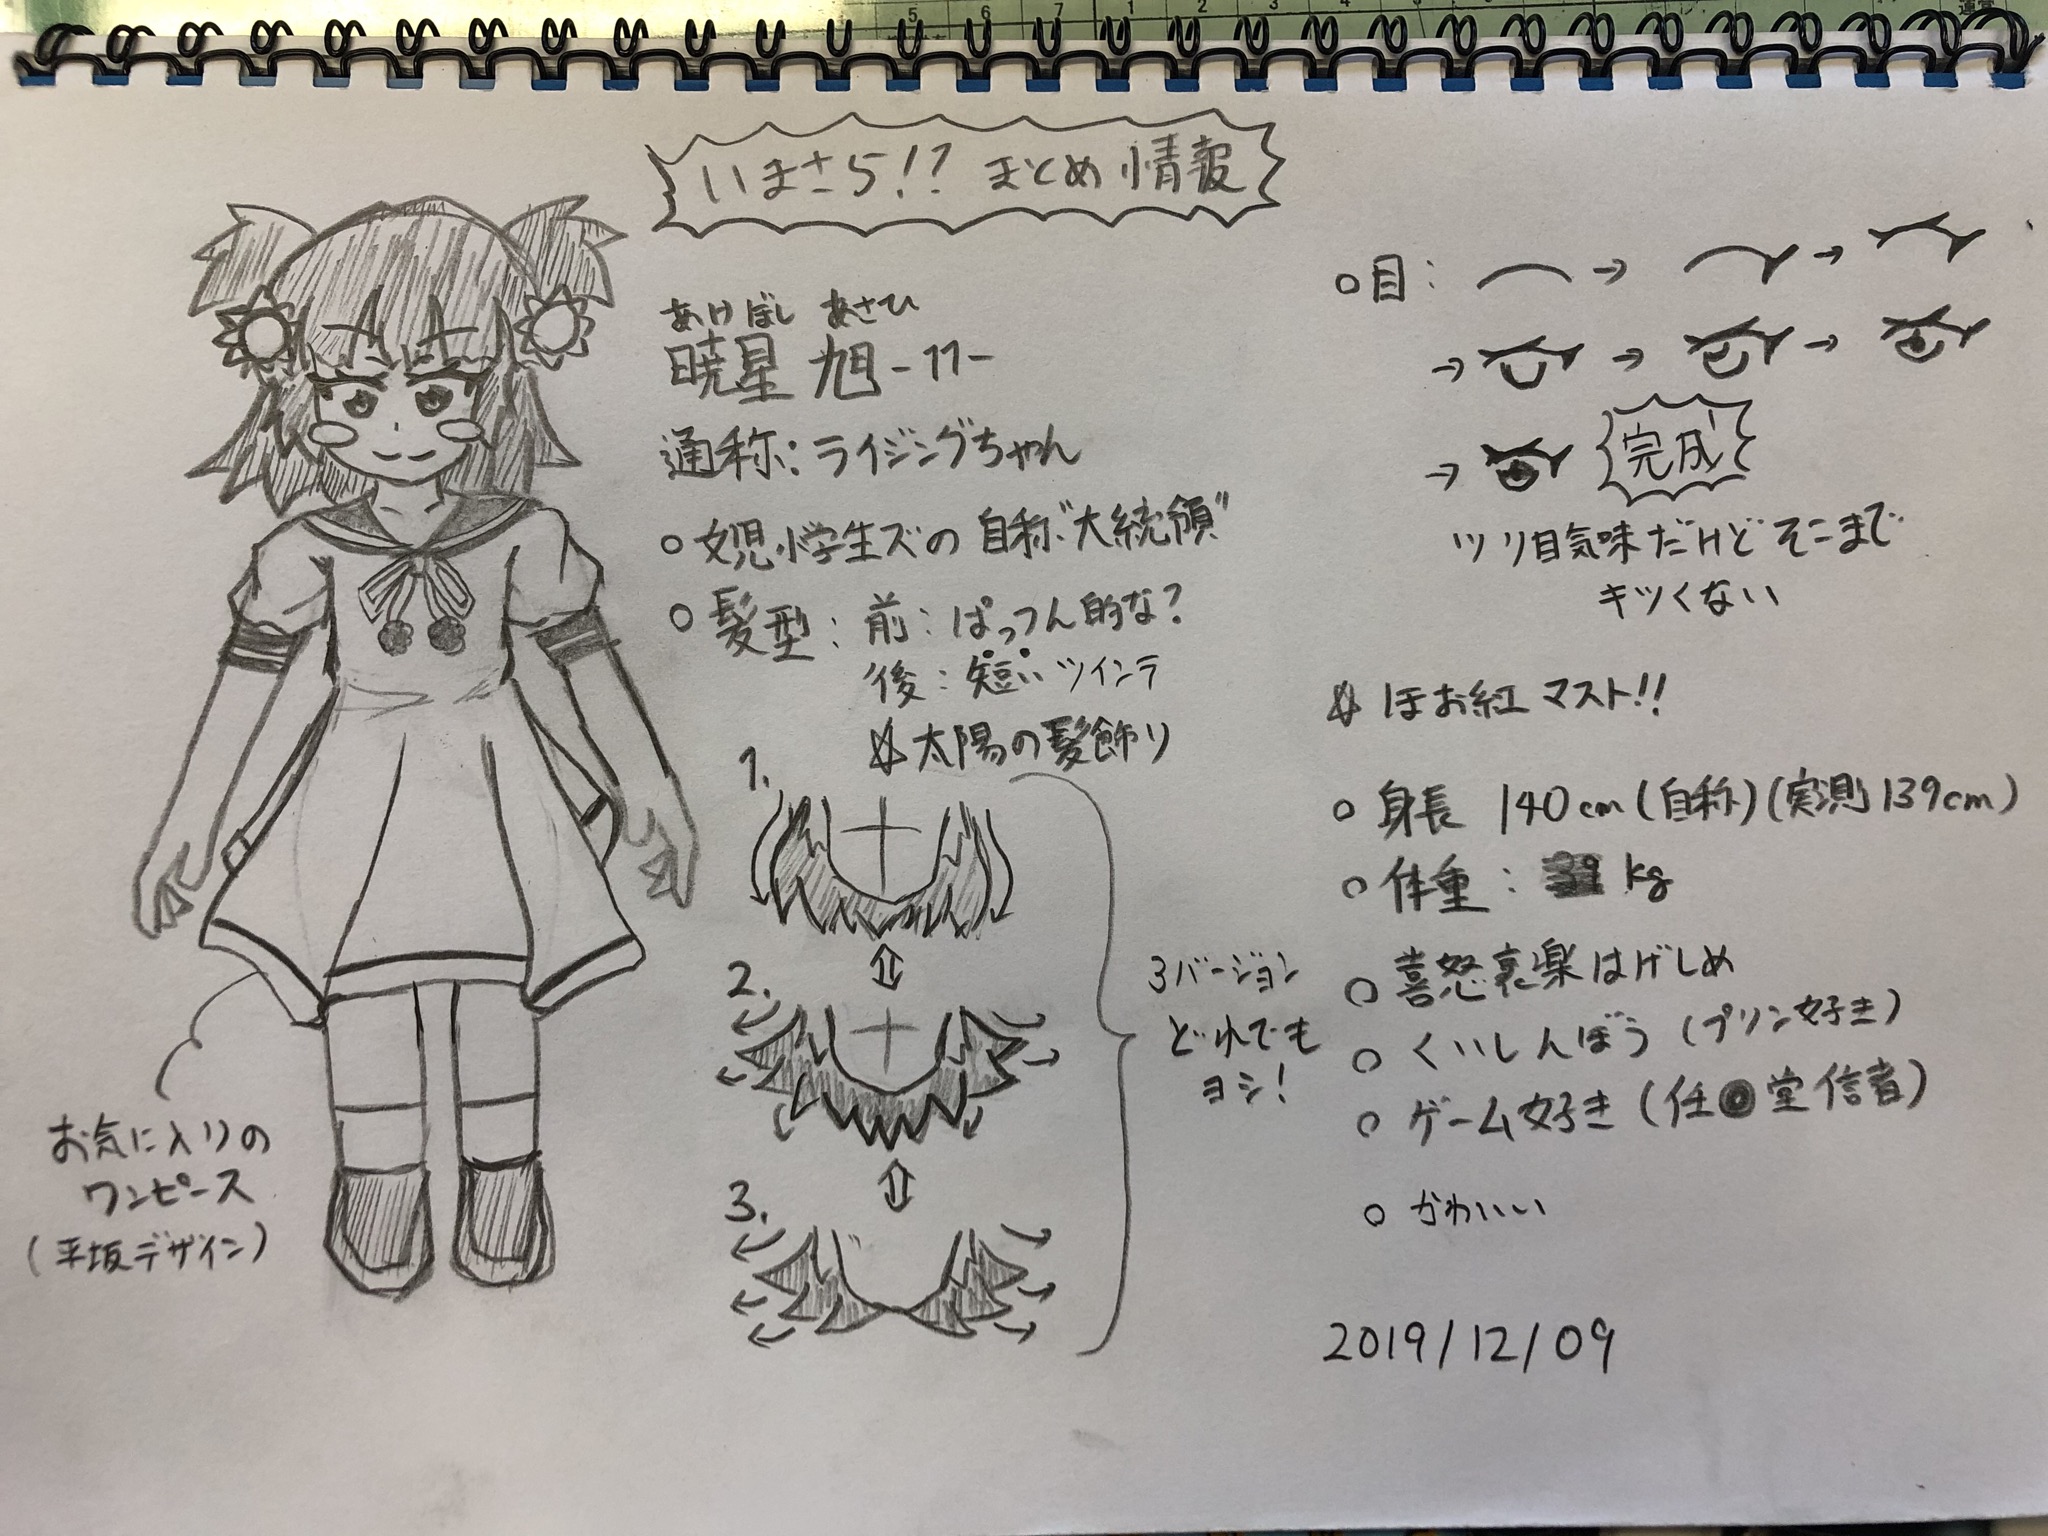 いまさら!? まとめ情報
あけぼし あさひ
暁星 旭-11-
通称:ライジングちゃん
○女児小学生ズの自称"大統領"
○髪型:前:ぱっつん的な?
後:短いツインテ
☆太陽の髪飾り
1.
2.
3.
3バージョン
どれでも
ヨシ!
お気に入りの
ワンピース
(平坂デザイン)
○目:
完成
ツリ目気味だけどそこまで
キツくない
☆ほお紅マスト!!
○身長 140cm(自称)(実測139cm)
○体重: kg
○喜怒哀楽はげしめ
○くいしんぼう(プリン好き)
○ゲーム好き(任●堂信者)
○かわいい
2019/12/09
5 6 7 1 2 3 4 5 6